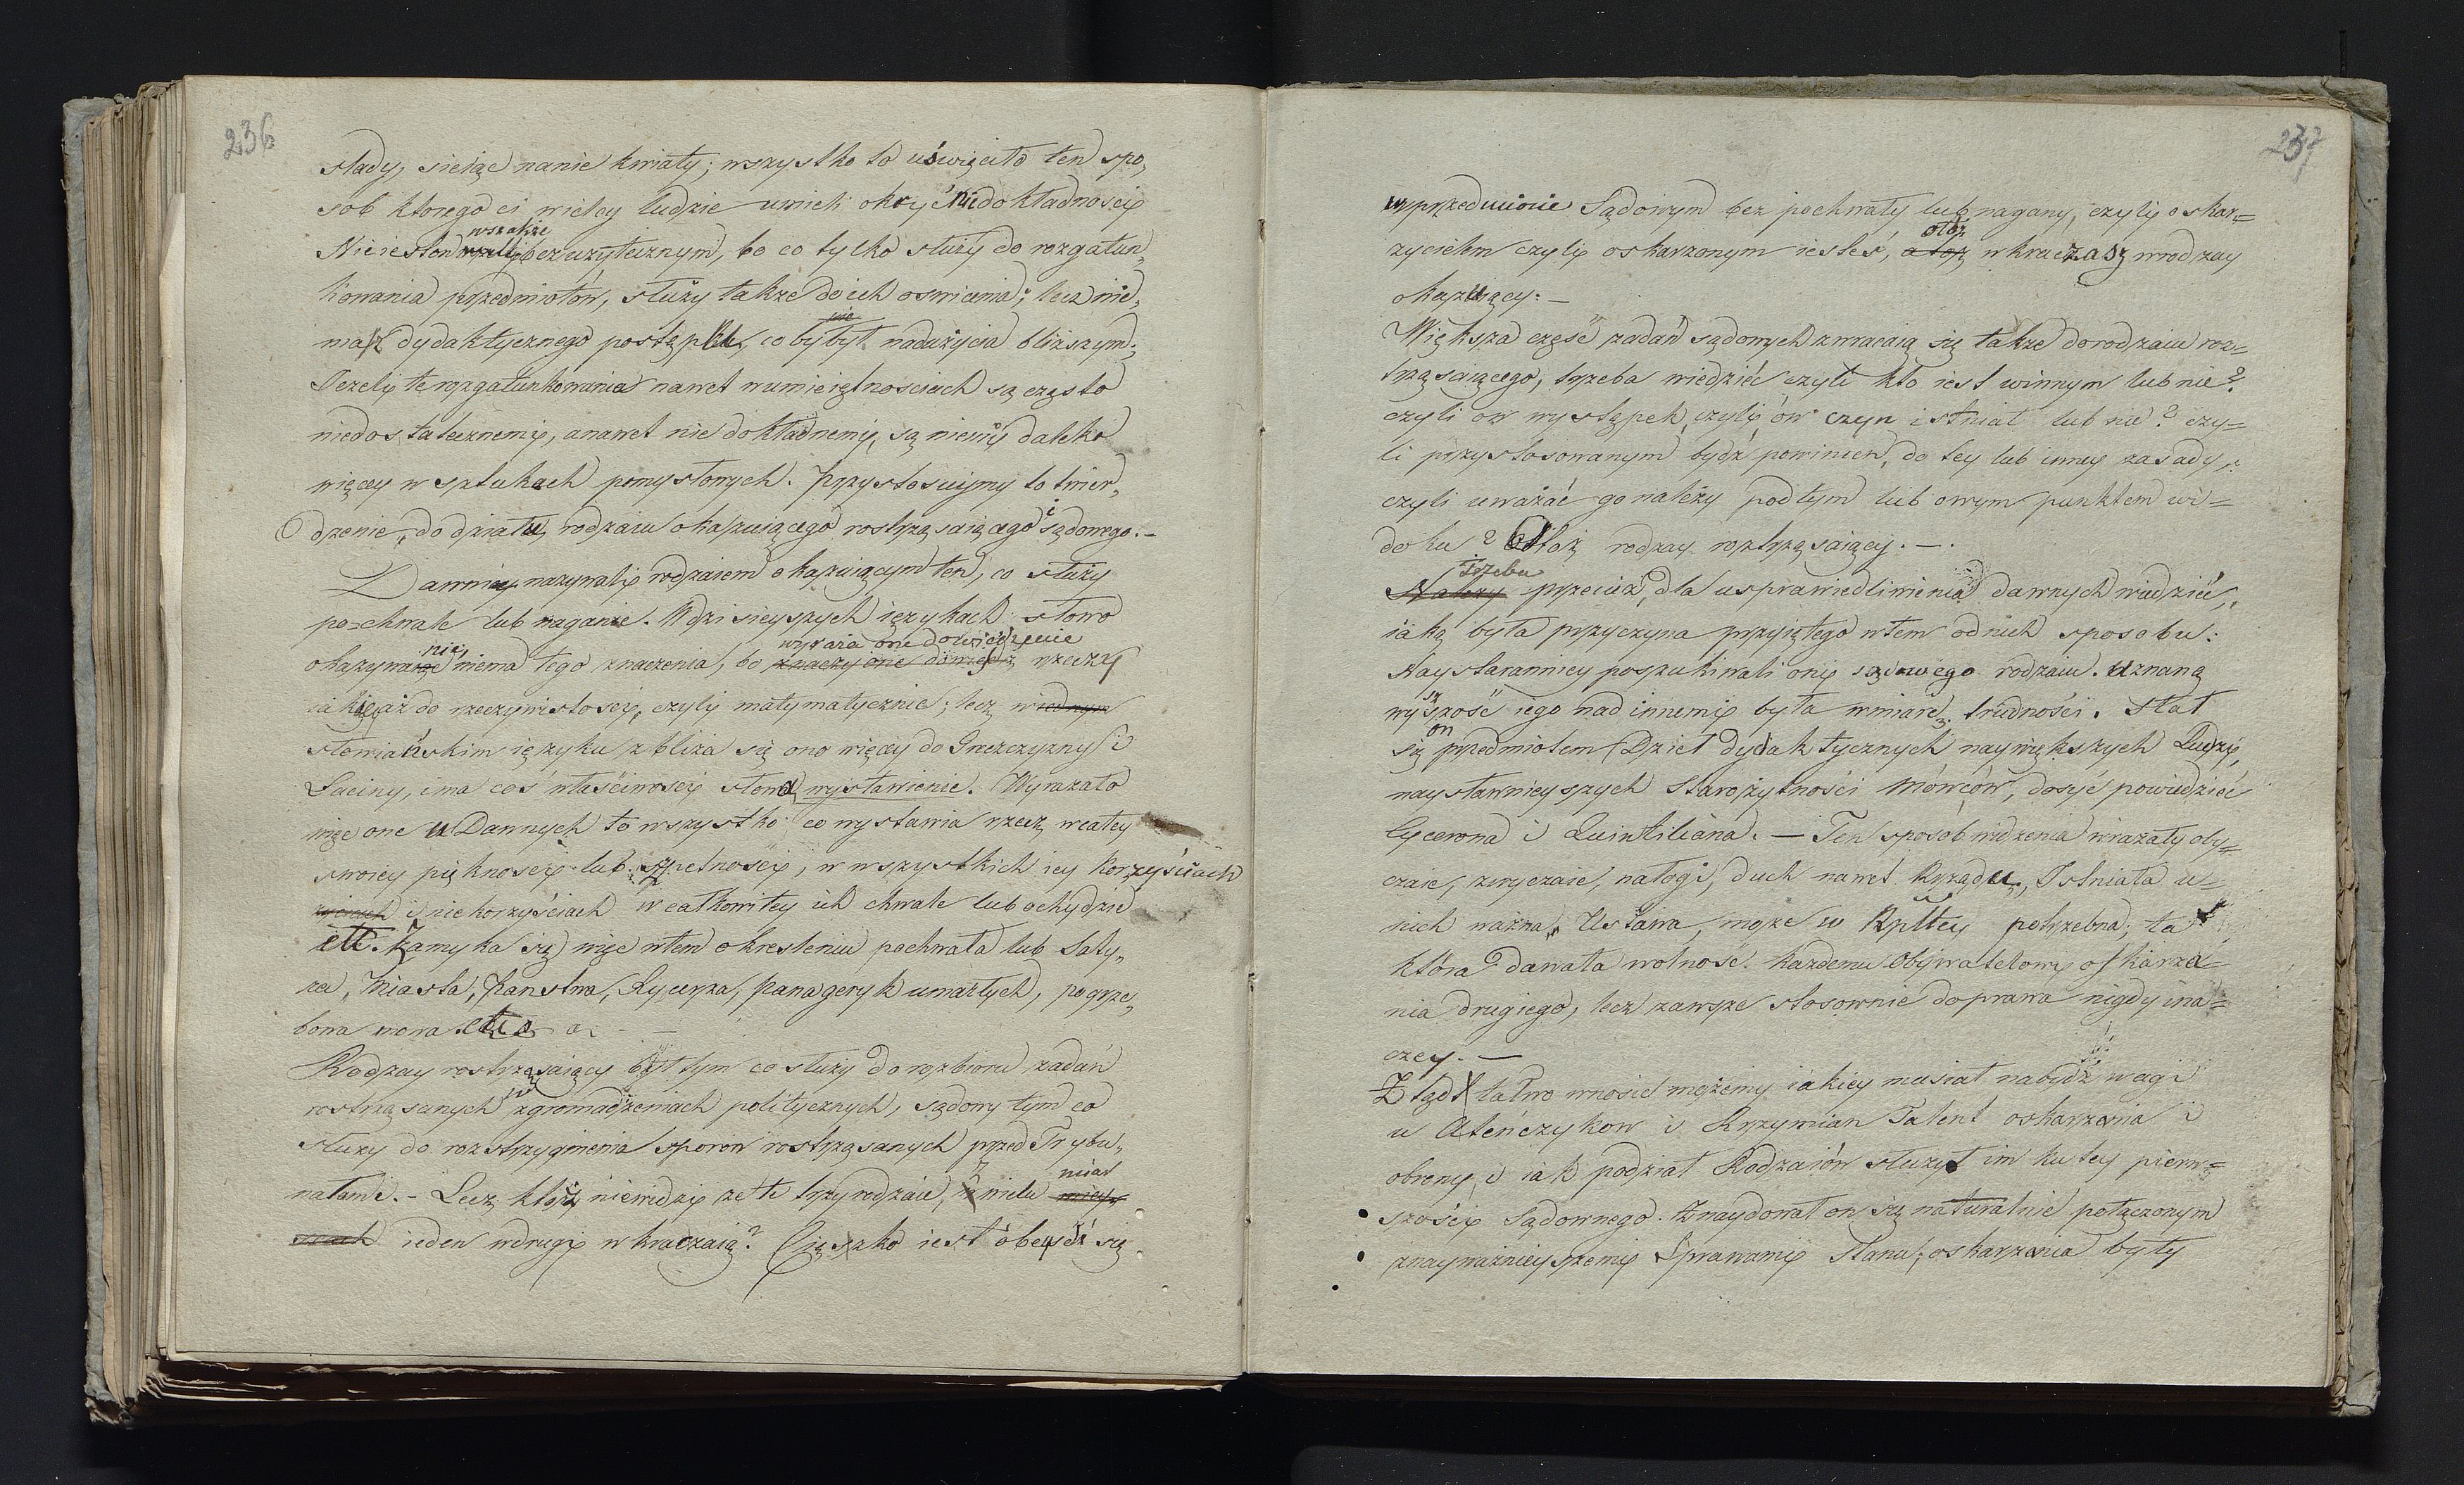 236
ślady, sieiąc nanie kwiaty; wszystko to uświęciło ten spo„
sob ktorego ci wielcy ludzie umieli okryć niedokładnoscią
wszakże
Nie iest on bezużytecznym, bo co tylko służy do rozgatun„
kowania przedmiotów, służy takze do ich oswiecenia; lecz nie„
nie
masz dydaktycznego postępku, co by był nadużycia bliższym;
Jeżeli te rozgatunkowania nawet w umieiętnosciach są często
niedostatecznemi, a nawet nie dokładnemi, są niemi daleko
więcey w sztukach pomysłowych. Przystosuymy to twier„
dzenie, do działu rodzaiu okazuiącego rostrząsaiącego i sądowego.–
Dawniey nazywali rodzaiem okazuiącym ten, co służy
po=chwale lub naganie. W dzisieyszych ięzykach słowo
nie wyraża one dowiedzenie
okazywanie niema tego znaczenia, bo znaczy one dowieść rzeczy
iakiey aż do rzeczywistosci, czyli matymatycznie; lecz w iednym
słowiańskim ięzyku zbliża się ono więcey do Greczyzny i
Łaciny, i ma coś właściwosci słowa wystawienie. Wyrażało
więc one u Dawnych to wszystko co wystawia rzecz w całey
swoiey pięknosci lub szpetności, w wszystkich iey korzyściach
i niekorzyściach w całkowitey ich chwale lub ochydzie
ett. Zamyka się więc w tem okresleniu pochwała lub Saty„
ra, Miasta, Państwa, Rycerza, panageryk umarłych, pogrze„
bowa mowa etc. –
Rodzay rostrząsaiący był tym co służy do rozbioru zadań
w
rostrząsanych zgromadzeniach politycznych, sądowy tym co
służy do rozstrzygnienia sporow rostrząsanych przed Trybu„
miar
nałami. – Lecz któż niewidzi że te trzy rodzaie, z wielu miey„
scach ieden w drugi wkraczaią? Cięszko iest obeyść się
237
w przedmiocie Sądowym bez pochwały lub nagany, czyli oskar=
otoż
życielem czyli oskarżonym iesteś, otoż wkraczasz w rodzay
okazuiący. –
Większa część zadań sądowych zwracaią się także do rodzaiu roz=
trząsaiącego, trzeba wiedzieć czyli kto iest winnym lub nie?
czyli ow występek, czyli ów czyn istniał lub nie? czy=
li przystosowanym bydź powinien, do tey lub inney zasady;
czyli uważać go należy pod tym lub owym punktem wi=
doku? Otoż rodzay roztrząsaiący. –.
Trzeba
Należy przecież, dla usprawiedliwienia dawnych wiedzieć,
iaka była przyczyna przyiętego w tem od nich sposobu:
Naystaranniey poszukiwali oni sądowego rodzaiu. Uznaną
wyższość iego nad innemi była w miarę trudności. Stał
on
się przedmiotem Dzieł dydaktycznych naywiększych Ludzi,
naysławnieyszych Starożytności Mówców, dosyć powiedzieć
Cycerona i Quintiliana. – Ten sposob widzenia wrażały oby=
czaie, zwyczaie, nałogi, duch nawet Rządu, Istniała u=
nich ważna, Ustawa, może w Rpltey potrzebna, ta
która dawała wolność każdemu Obywatelowi oskarża=
nia drugiego, lecz zawsze stosownie do prawa nigdy ina=
czey. –
Z tąd łatwo wnosić możemy iakiey musiał nabydź wagi
u Ateńczykow i Rzymian Talent oskarżenia i
obrony, i iak podział Rodzaiów służył im ku tey pierw=
szości Sądownego. Znaydował on się naturalnie połączonym
znayważnieyszemi Sprawami Stanu; oskarżenia były